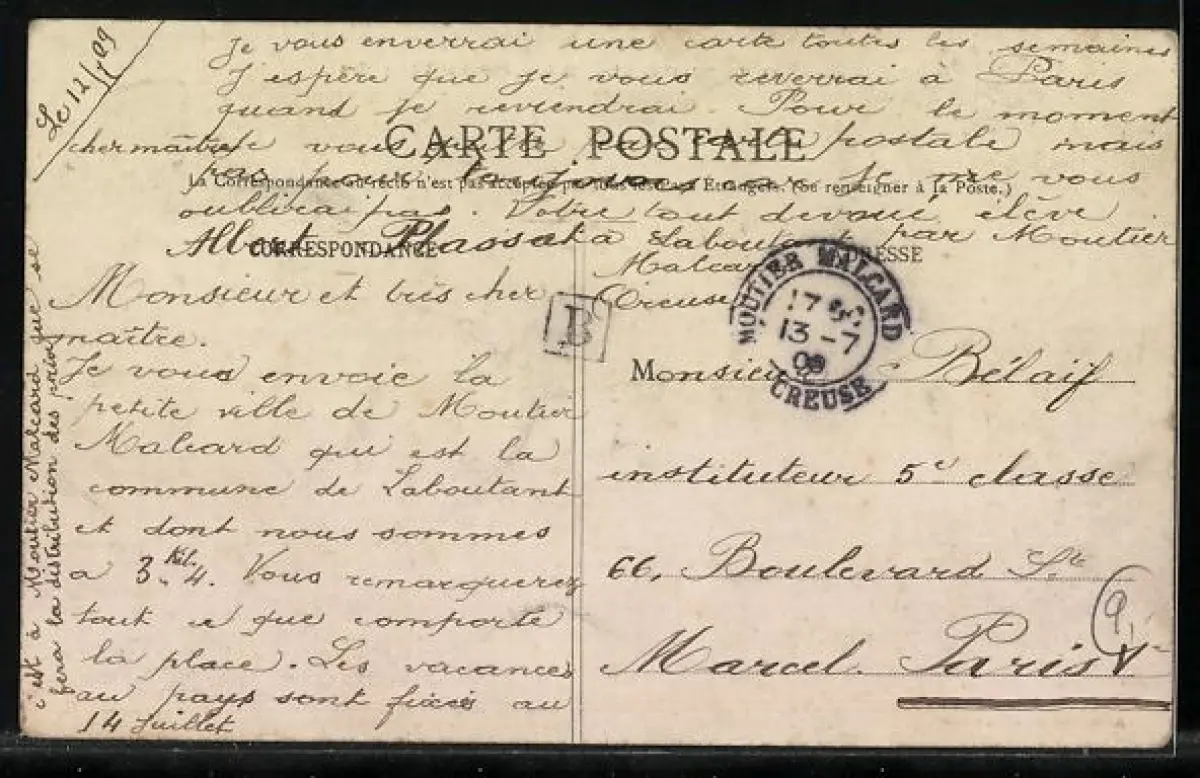 Le 12/7 09
Je vous enverrai une carte toutes les semaines
J'espère que je vous reverrai à Paris
quand je reviendrai. Pour le moment
cher maître je vous quitte sur carte postale mais
CARTE POSTALE
pas pour toujours car je ne vous
La Correspondance au recto n'est pas acceptée par tous les Pays Etrangers. (Se renseigner à la Poste.)
oublierai pas. Votre tout dévoué élève
Albert Plassat à Laboutant par Moutier
CORRESPONDANCE
ADRESSE
Malcard
Creuse
Monsieur et très cher
maître.
Je vous envoie la
petite ville de Moutier
Malcard qui est la
commune de Laboutant
et dont nous sommes
à 3 Kil. 4. Vous remarquerez
tout ce que comporte
la place. Les vacances
au pays sont fixées au
14 Juillet
c'est à Moutier Malcard que se
fera la distribution des prix
B
MOUTIER MALCARD
13-7
09
CREUSE
Monsieur Bélaif
instituteur 5e classe
66, Boulevard St
Marcel. Paris Ve
9